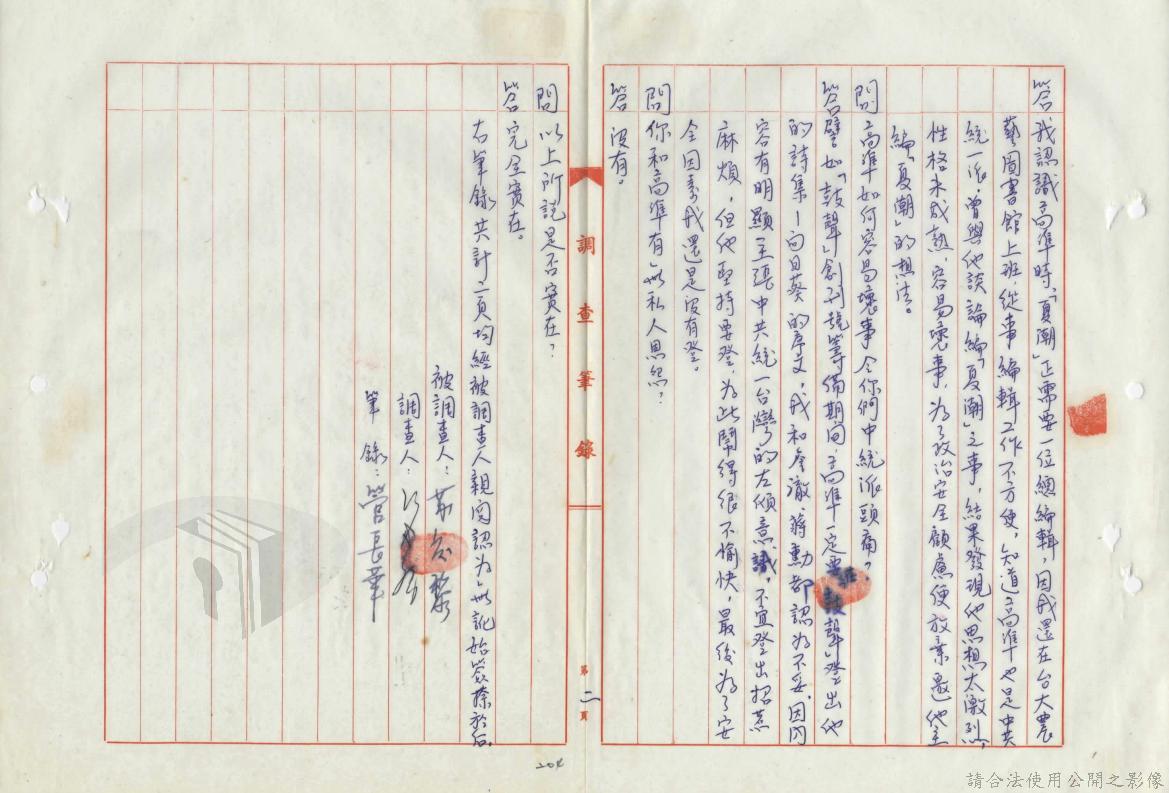 答 我認識高準時，「夏潮」正需要一位總編輯，因我還在台大農
藝圖書館上班，從事編輯工作不方便，知道高準也是中共
統一派，曾與他談論編「夏潮」之事，結果發現他思想太激烈，
性格未成熟，容易壞事，為了政治安全顧慮便放棄邀他主
編「夏潮」的想法。
問 高準如何容易壞事令你們中統派頭痛？
答 譬如「鼓聲」創刊號籌備期間，高準一定要在「鼓聲」登出他
的詩集－向日葵的序文，我和金澈、蔣勳都認為不妥，因內
容有明顯主張中共統一台灣的左傾意識，不宜登出招惹
麻煩，但他堅持要登，為此鬧得很不愉快，最後為了安
全因素我還是沒有登。
問 你和高準有無私人恩怨？
答 沒有。
調查筆錄
第二頁
問 以上所說是否實在？
答 完全實在。
右筆錄共計二頁均經被調查人親閱認為無訛始簽捺於后。
被調查人：
調查人：
筆錄：管長華
204
請合法使用公開之影像